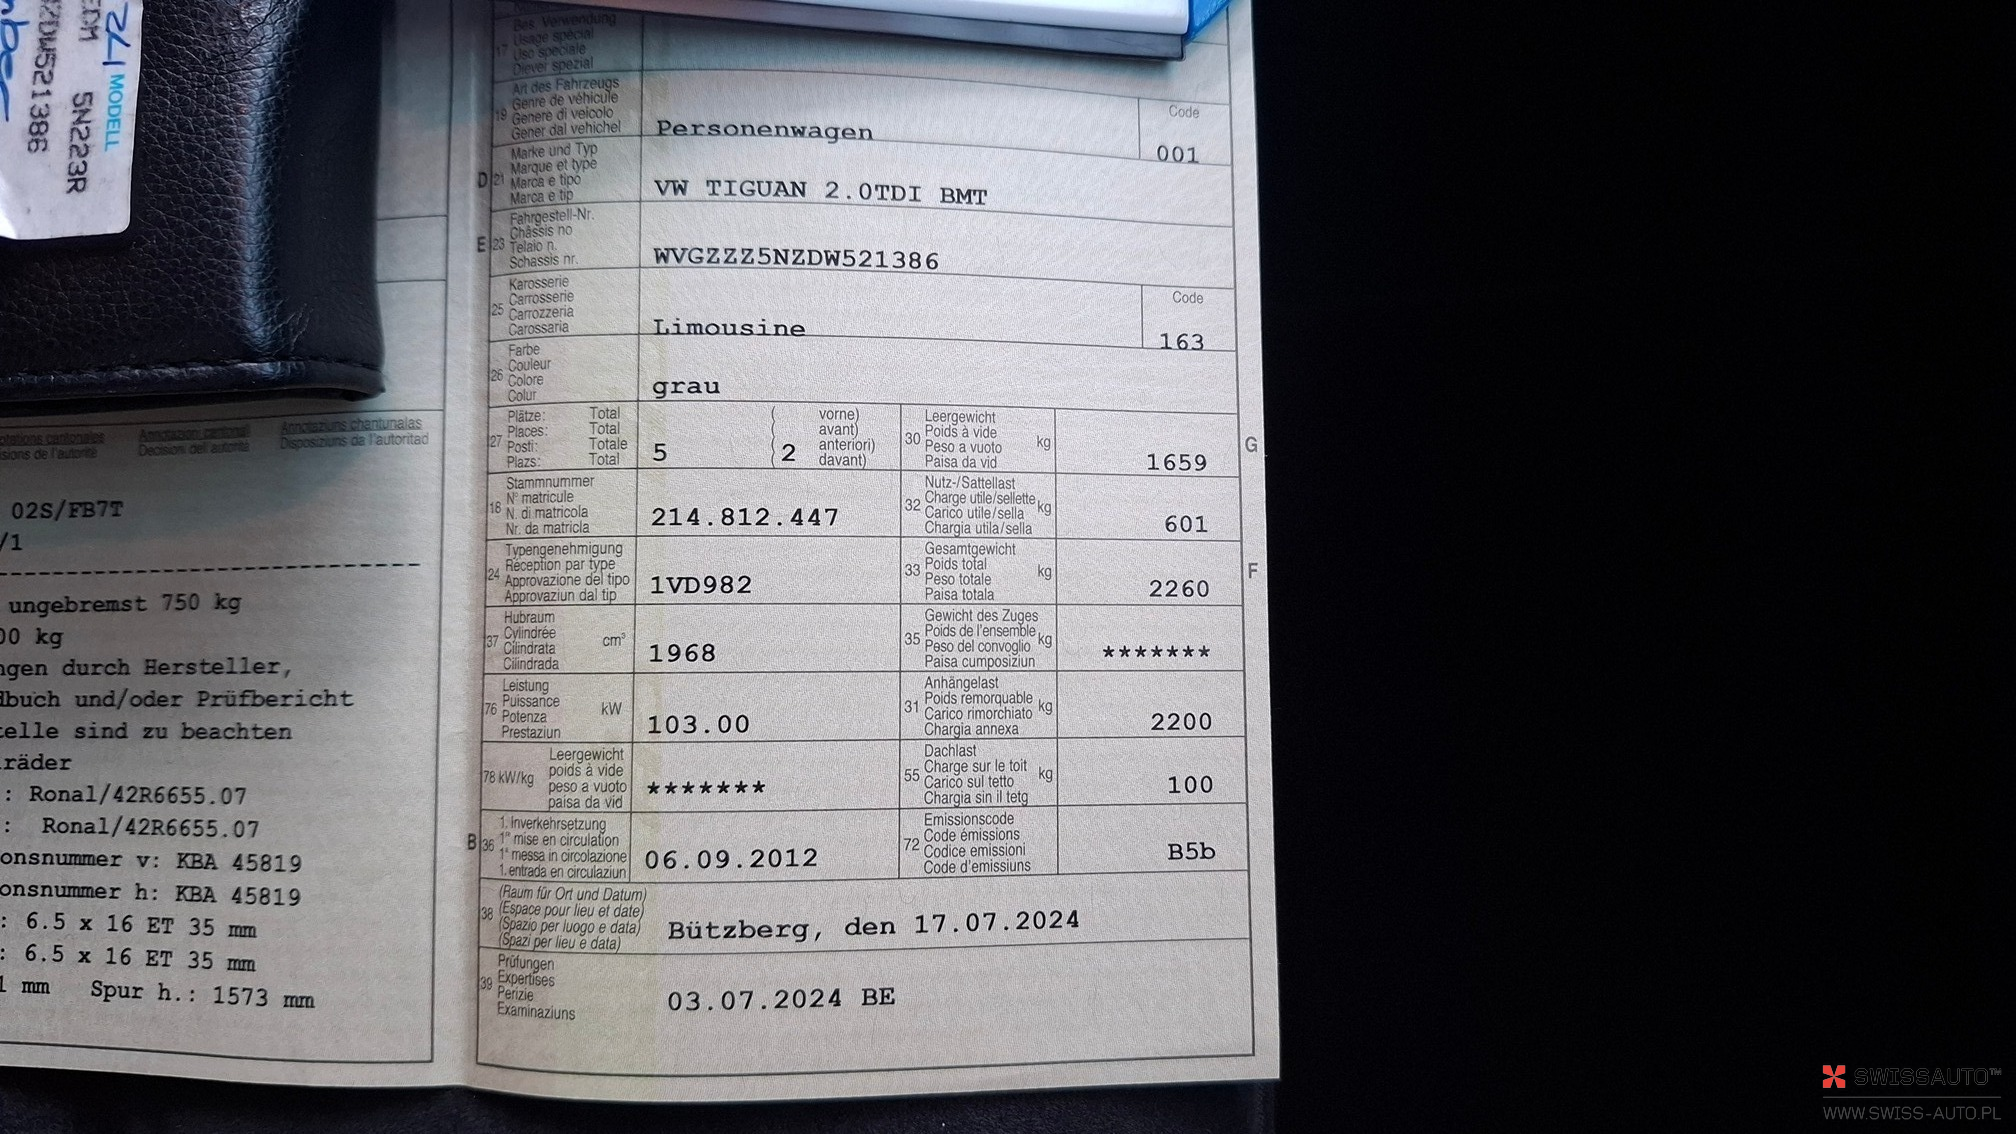 MODELL
5N223R
5211386
Annotaziun cantonal
Annotaziuns chantunalas
Decisioni dell'autorità
Disposiziuns da l'autoritad
02S/FB7T
/1
ungebremst 750 kg
00 kg
ngen durch Hersteller,
dbuch und/oder Prüfbericht
telle sind zu beachten
räder
: Ronal/42R6655.07
: Ronal/42R6655.07
onsnummer v: KBA 45819
onsnummer h: KBA 45819
: 6.5 x 16 ET 35 mm
: 6.5 x 16 ET 35 mm
1 mm Spur h.: 1573 mm
17 Bes. Verwendung
Usage spécial
Uso speciale
Diever spezial
19 Art des Fahrzeugs
Genre de véhicule
Genere di veicolo
Gener dal vehichel
Personenwagen
Code
001
D 21 Marke und Typ
Marque et type
Marca e tipo
Marca e tip
VW TIGUAN 2.0TDI BMT
E 23 Fahrgestell-Nr.
Châssis no
Telaio n.
Schassis nr.
WVGZZZ5NZDW521386
25 Karosserie
Carrosserie
Carrozzeria
Carossaria
Limousine
Code
163
26 Farbe
Couleur
Colore
Colur
grau
27 Plätze: Total
Places: Total
Posti: Totale
Plazs: Total
5
( vorne)
( avant)
( anteriori)
( davant)
2
30 Leergewicht
Poids à vide
Peso a vuoto
Paisa da vid
kg
1659
G
18 Stammnummer
N° matricule
N. di matricola
Nr. da matricla
214.812.447
32 Nutz-/Sattellast
Charge utile/sellette
Carico utile/sella
Chargia utila/sella
kg
601
24 Typengenehmigung
Réception par type
Approvazione del tipo
Approvaziun dal tip
1VD982
33 Gesamtgewicht
Poids total
Peso totale
Paisa totala
kg
2260
F
37 Hubraum
Cylindrée
Cilindrata
Cilindrada
cm³
1968
35 Gewicht des Zuges
Poids de l'ensemble
Peso del convoglio
Paisa cumposiziun
kg
*******
76 Leistung
Puissance
Potenza
Prestaziun
kW
103.00
31 Anhängelast
Poids remorquable
Carico rimorchiato
Chargia annexa
kg
2200
78 kW/kg
Leergewicht
poids à vide
peso a vuoto
paisa da vid
*******
55 Dachlast
Charge sur le toit
Carico sul tetto
Chargia sin il tetg
kg
100
B 36 1. Inverkehrsetzung
1re mise en circulation
1a messa in circolazione
1. entrada en circulaziun
06.09.2012
72 Emissionscode
Code émissions
Codice emissioni
Code d'emissiuns
B5b
38 (Raum für Ort und Datum)
(Espace pour lieu et date)
(Spazio per luogo e data)
(Spazi per lieu e data)
Bützberg, den 17.07.2024
39 Prüfungen
Expertises
Perizie
Examinaziuns
03.07.2024 BE
SWISSAUTO™
WWW.SWISS-AUTO.PL